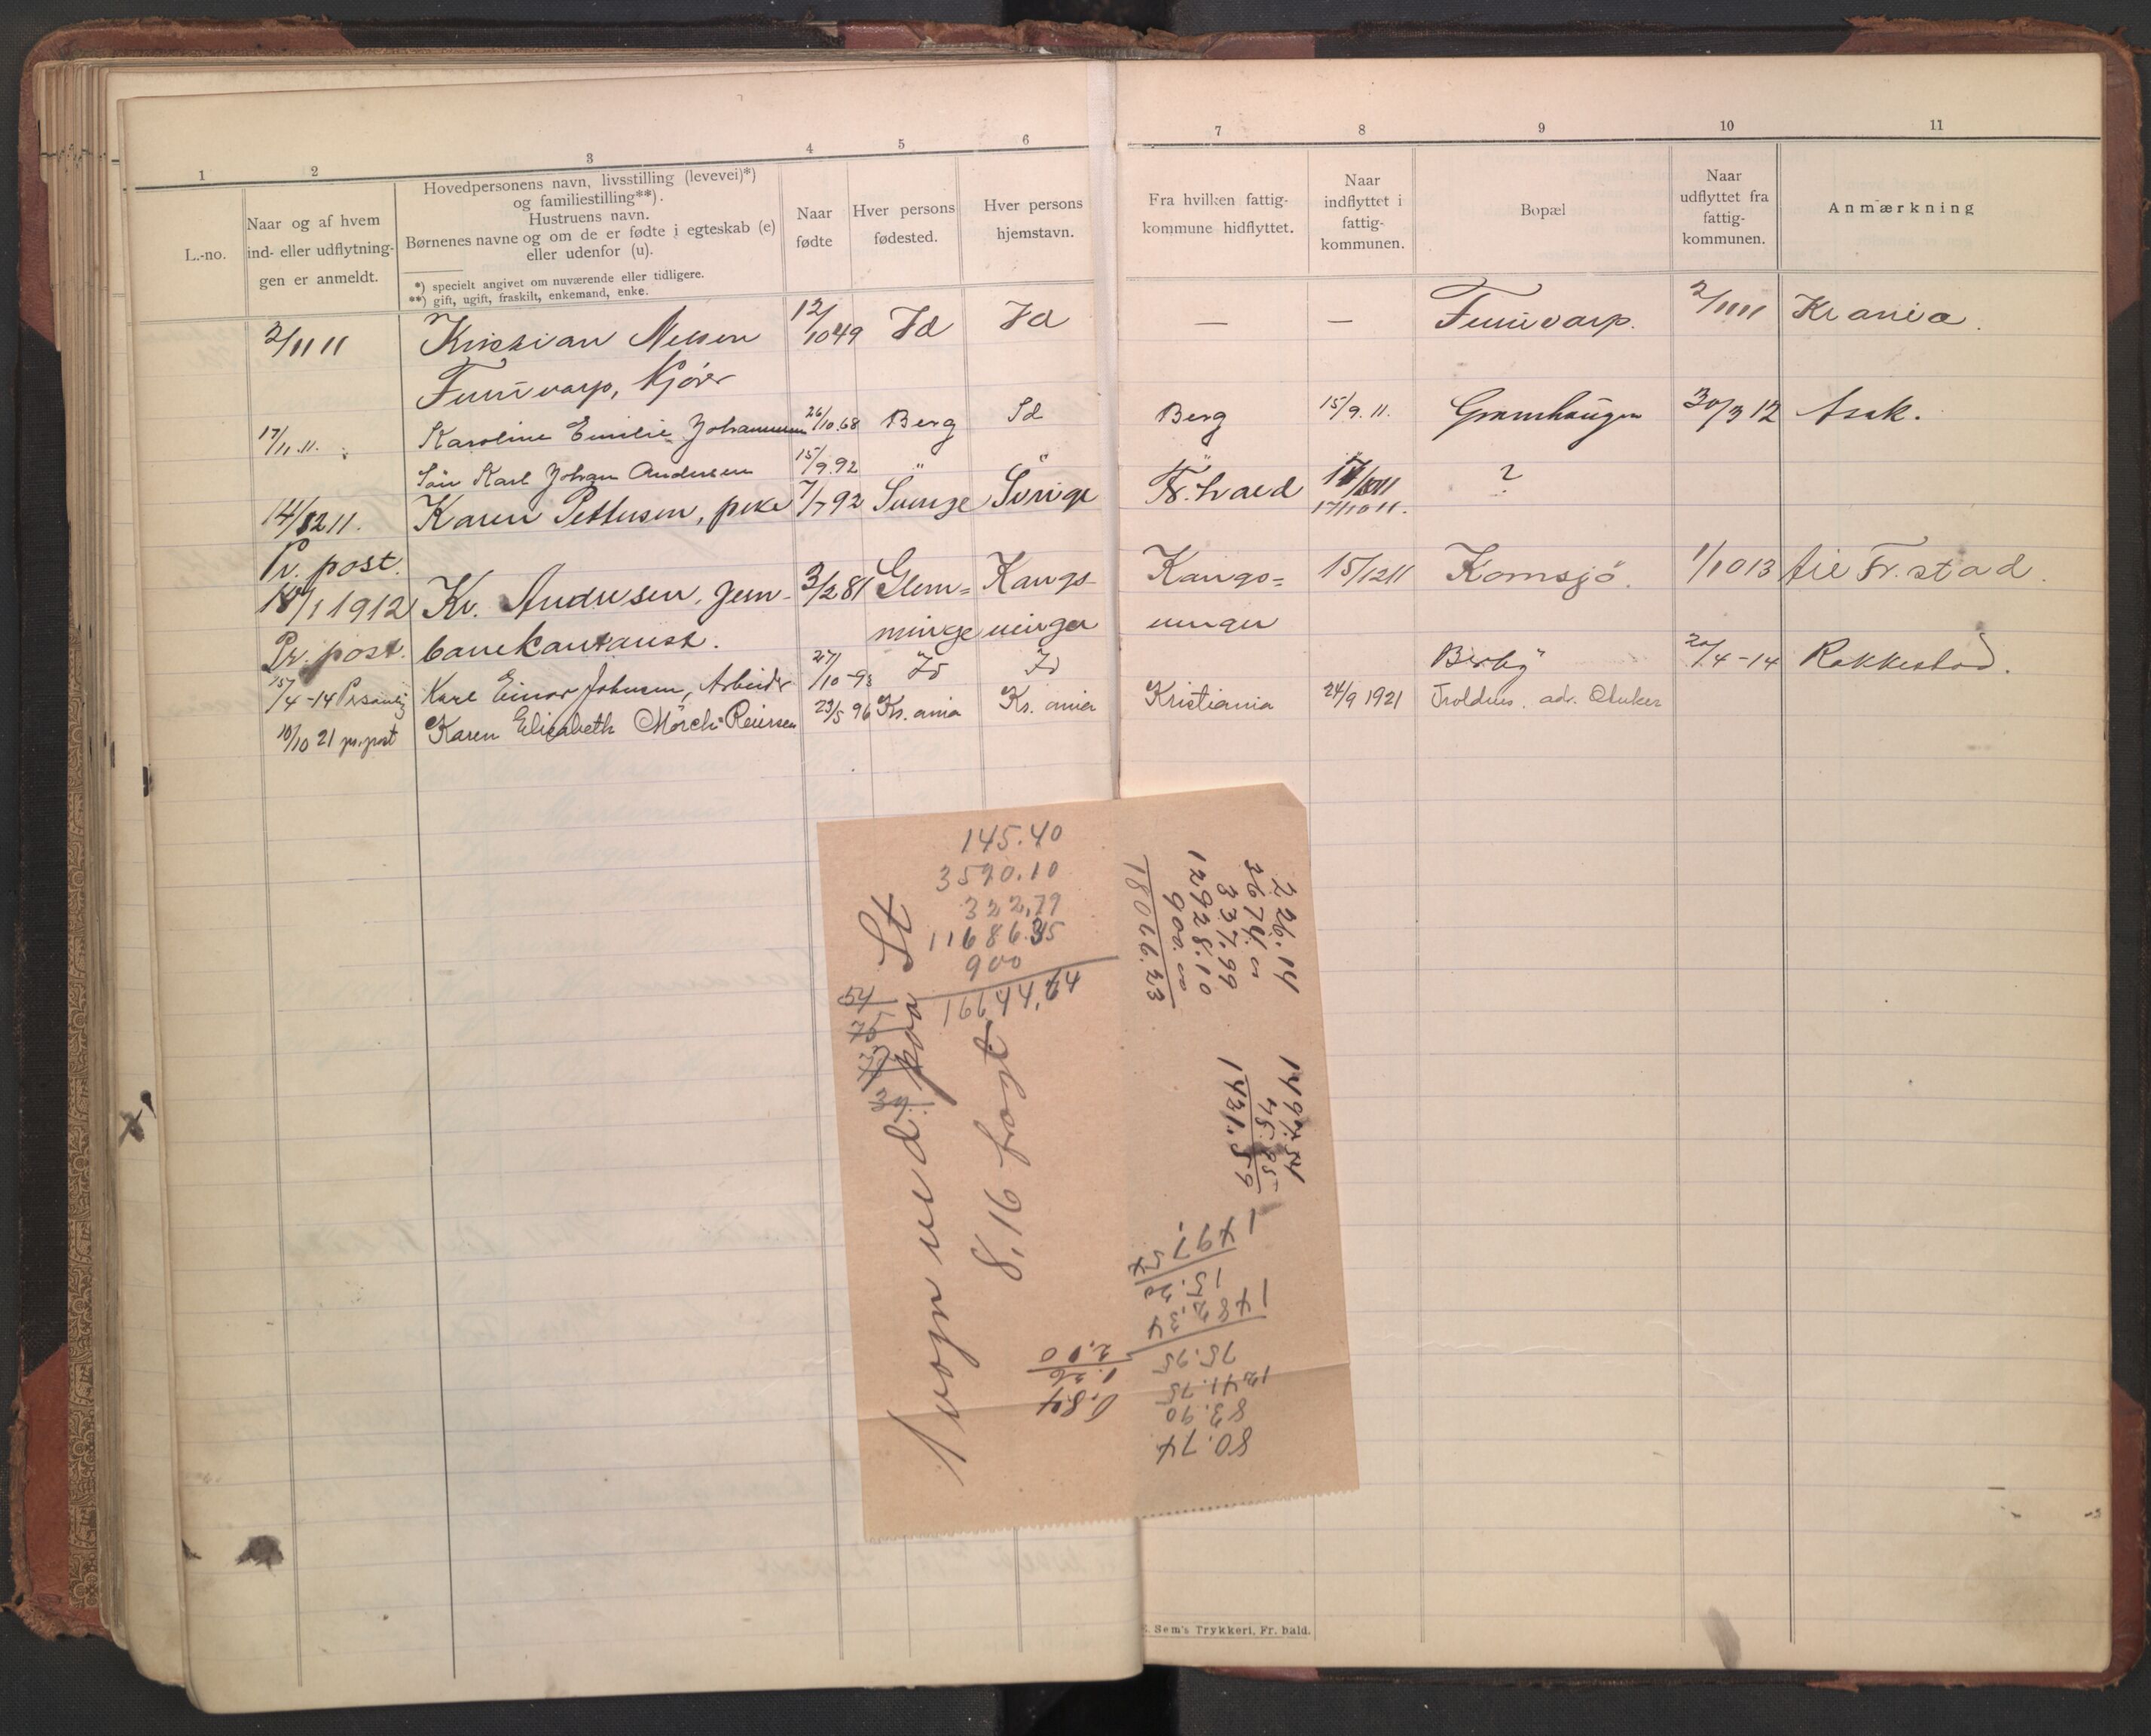 1 2 3 4 5 6 7 8 9 10 11
L.-no.
Naar og af hvem
ind- eller udflytnin-
gen er anmeldt.
Hovedpersonens navn, livsstilling (levevei)*)
og familiestilling**).
Hustruens navn.
Børnenes navne og om de er fødte i egteskab (e)
eller udenfor (u).
*) specielt angivet om nuværende eller tidligere.
**) gift, ugift, fraskilt, enkemand, enke.
Naar
fødte
Hver persons
fødested.
Hver persons
hjemstavn.
Fra hvilken fattig-
kommune hidflyttet.
Naar
indflyttet i
fattig-
kommunen.
Bopæl
Naar
udflyttet fra
fattig-
kommunen.
Anmærkning
2/11 11 Kristian Nelsen 12/10 49 Id Id — — 2/11 11 Kr ania.
17/11.11. Karoline Emilie Johannesen 26/10.68 Berg Id Berg 15/9.11. Grønnhaugen 30/3 12 Asak.
Søn Karl Johan Andersen 15/9.92 " " " ?
14/12 11. Karen Pettersen, pike 7/7 92 Sverige Sverige Fr.hald 17/10 11.
Pr. post.
18/1 1912 Kr. Andresen, jern- 3/2 81 Glem= Kongs- Kongs= 15/12 11 Kornsjö. 1/10 13 til Fr.stad.
Pr. post. banekontorist. minge vinger vinger
15/4-14 Karl Einar Johnsen, Arbeider 27/10-93 Id Id Berby 20/4-14 Rakkestad.
10/10 21 pr. post Karen Elisabeth Mörch-Reiersen 23/5 96 Kr. ania Kr. ania Kristiania 24/9 1921
145.40
3590.10
322,79
11686.35
900
16644,64
54
75
39
1 vogn ved paa St
8,16 fragt
226.14
2674.00
337.99
12928.10
900.00
18066.23
1497.54
75.95
1421.59
1497,54
15.20
1482.34
75.95
1241.75
83.90
80.74
2,10
1.26
0.84
E. Sem's Trykkeri, Fr. hald.